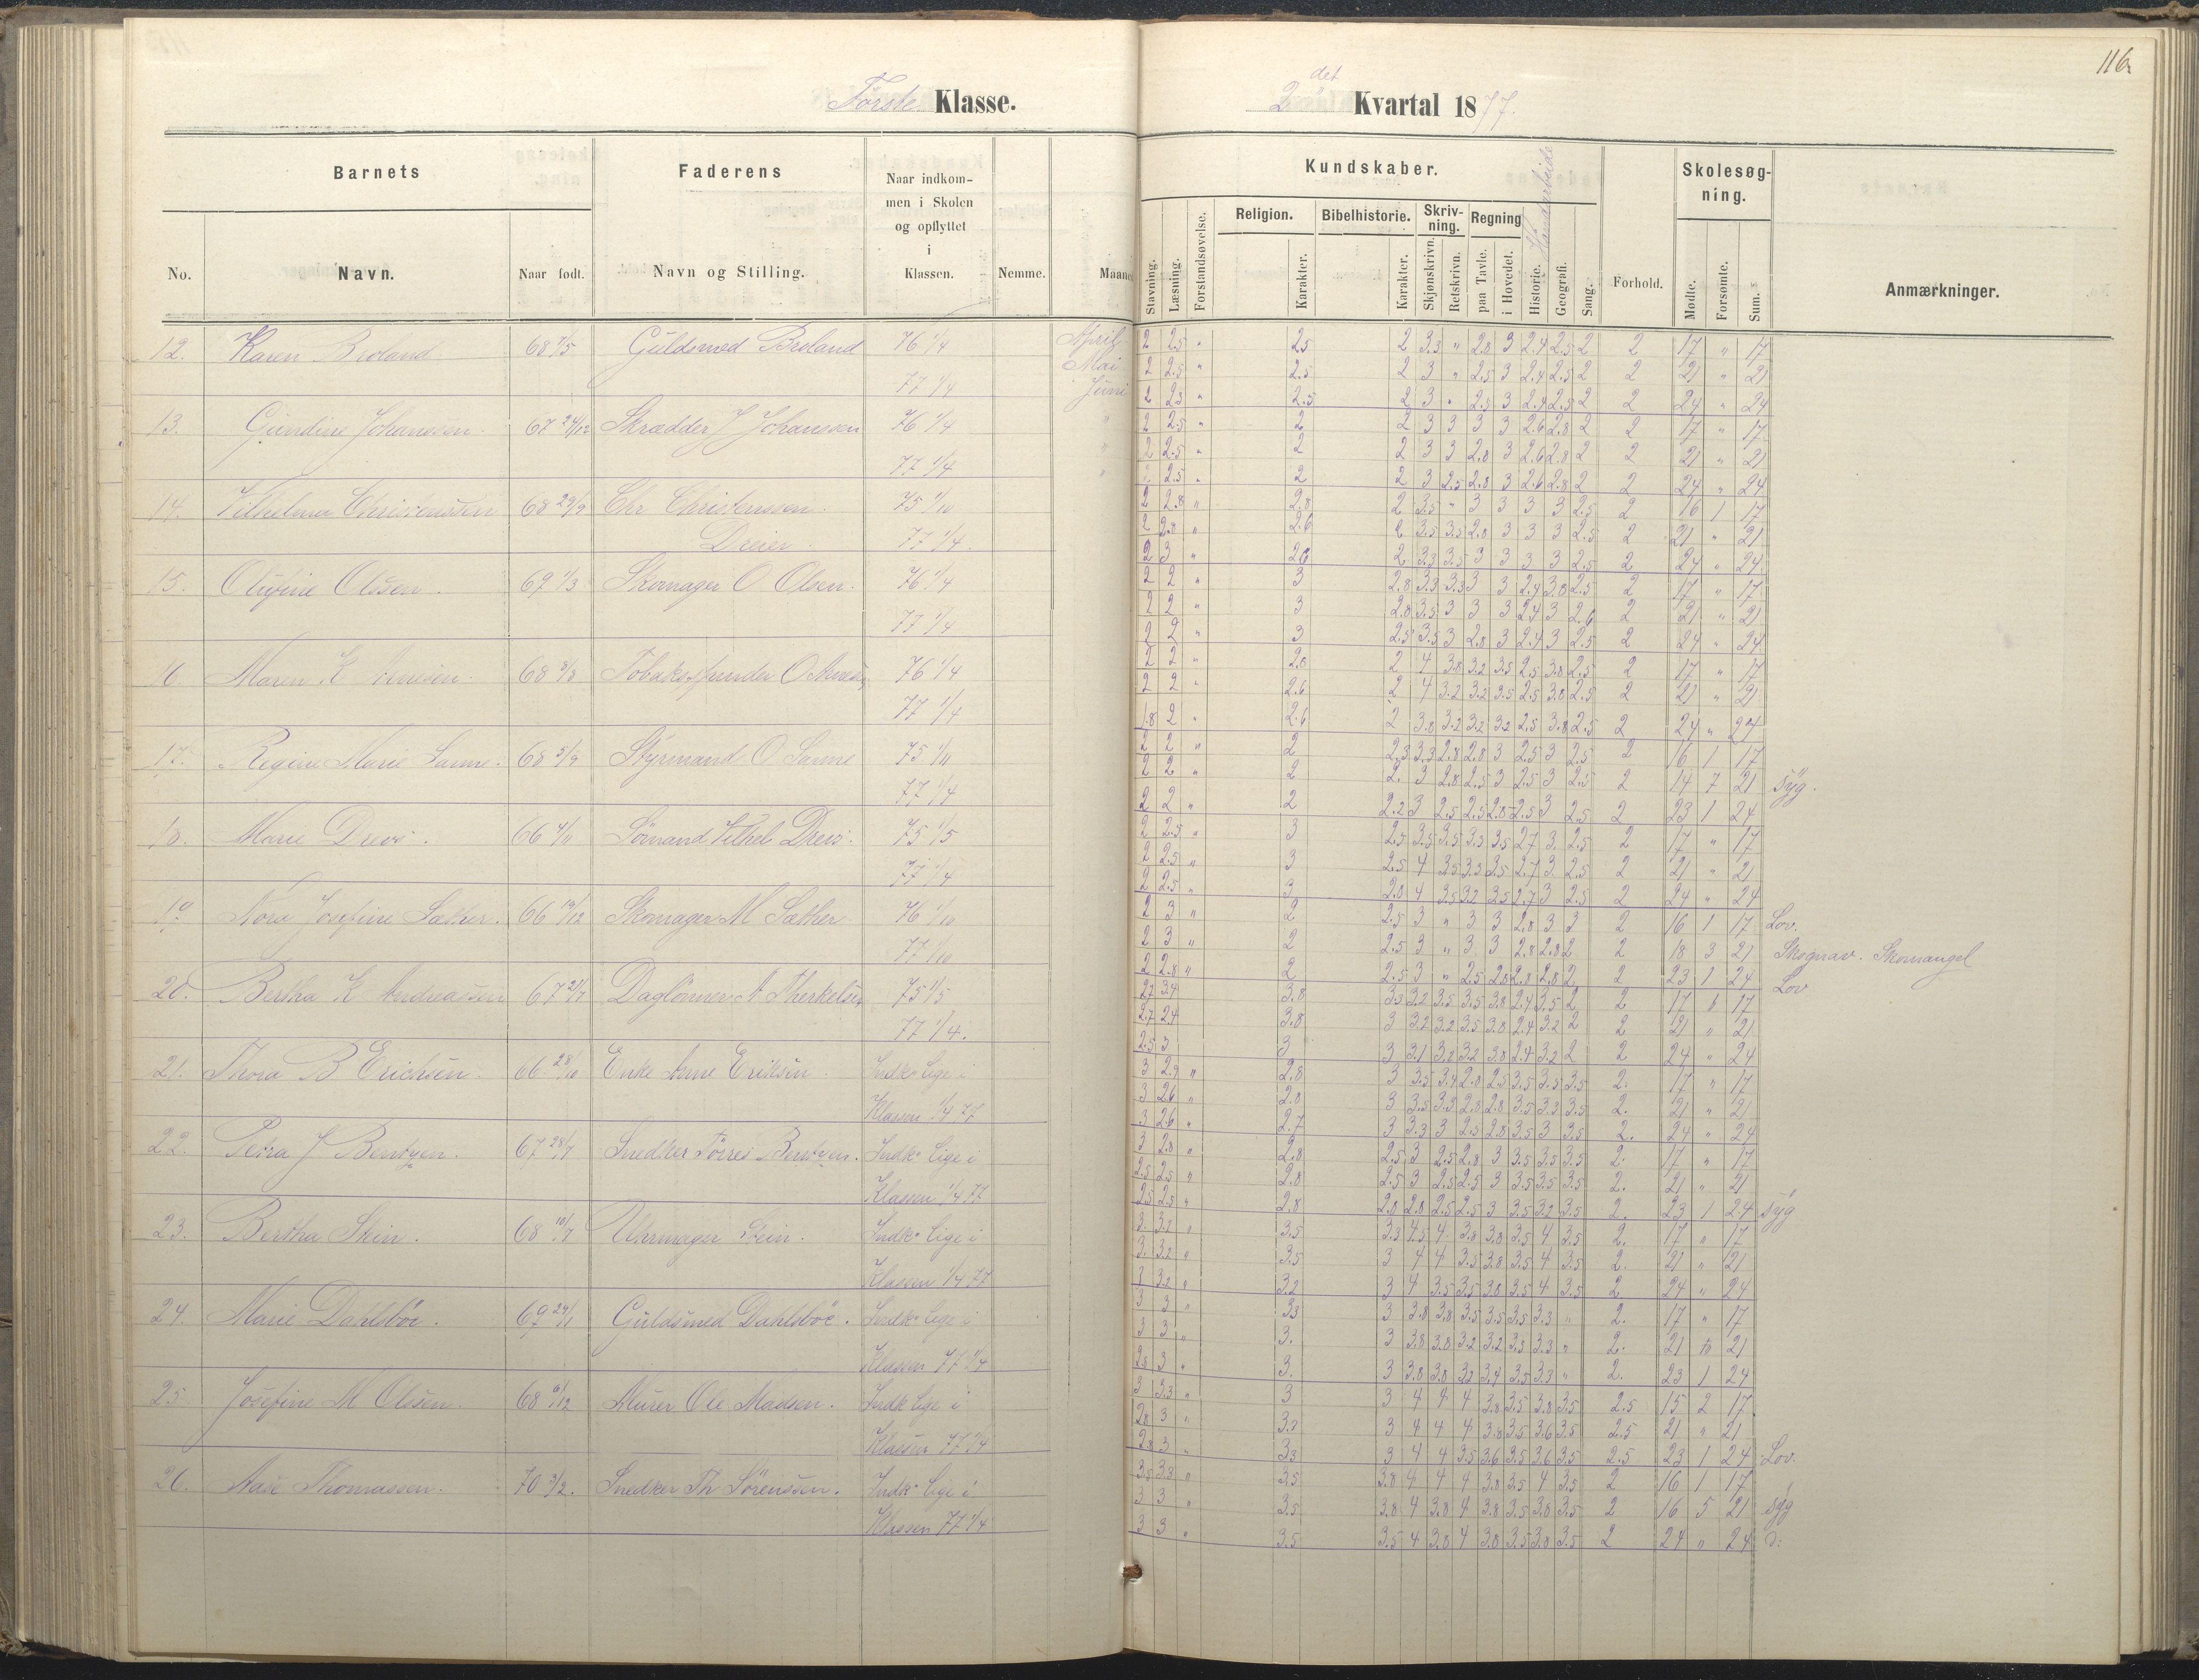 116
Første Klasse.
2det Kvartal 1877.
Barnets
Faderens
Naar indkommen i Skolen og opflyttet i Klassen.
Nemme.
Maaned
No.
Navn.
Naar født.
Navn og Stilling.
Kundskaber.
Stavning.
Læsning.
Forstandsøvelse.
Religion.
Karakter.
Bibelhistorie.
Karakter.
Skrivning.
Skjønskrivn.
Retskrivn.
Regning
paa Tavle.
i Hovedet.
Historie.
Haandarbeide
Geografi.
Sang.
Forhold.
Skolesøgning.
Mødte.
Forsømte.
Sum.
Anmærkninger.
12. Karen Broland 68 7/5 Guldsmed Broland 76 1/4 April 2 2.5 " 2.5 2 3.3 " 2.8 3 2.4 2.5 2 2 17 " 17
77 1/4 Mai 2 2.5 " 2.5 2 3 " 2.5 3 2.4 2.5 2 2 21 " 21
Juni 2 2.5 " 2.5 2 3 " 2.5 3 2.4 2.5 2 2 24 " 24
13. Gundine Johanssen. 67 24/12 Skrædder J Johanssen 76 1/4 " 2 2.5 " 2 2 3 3 3 3 2.6 2.8 2 2 17 " 17
77 1/4 " 2 2.5 " 2 2 3 3 2.8 3 2.6 2.8 2 2 21 " 21
" 2.5 " 2 2 3 2.5 2.8 3 2.6 2.8 2 2 24 " 24
14. Vilhelmine Christenssen 68 29/9 Chr Christenssen. 75 1/10 2 2.8 " 2.8 2 3.5 " 3 3 3 3 2.5 2 16 1 17
Dreier. 77 1/4 2 2.8 " 2.6 2 3.5 3.5 2.8 3 3 3 2.5 2 21 " 21
2 3 " 2.6 2 3.3 3.5 3 3 3 3 2.5 2 24 " 24
15. Olufine Olssen. 69 1/3 Skomager O Olsen. 76 1/4 2 2 " 3 2.8 3.3 3.3 3 3 2.4 3.0 2.5 2 17 " 17
77 1/4 2 2 " 3 2.8 3.5 3 3 3 2.4 3 2.6 2 21 " 21
2 2 " 3 2.5 3.5 3 2.8 3 2.4 3 2.5 2 24 " 24
16. Maren K Arnesen. 68 8/8 Tobakspinder O Arnesen 76 1/4 2 2 " 2.8 2 4 3.8 3.2 3.5 2.5 3.8 2.5 2 17 " 17
77 1/4 2 2 " 2.6 2 4 3.2 3.2 3.5 2.5 3.8 2.5 2 21 " 21
1.8 2 " 2.6 2 3.8 3.2 3.2 3.2 2.5 3.8 2.5 2 24 " 24
17. Regine Marie Sanne. 68 5/9 Styrmand O Sanne 75 1/11 2 2 " 2 2.3 3.3 2.8 2.8 3 2.5 3 2.5 2 16 1 17
77 1/4 2 2 " 2 2. 3 2.8 2.5 3 2.5 3 2.5 2 14 7 21 Syg.
2 2 " 2 2.2 3 2.5 2.5 2.8 2.5 3 2.5 2 23 1 24
18. Marie Drews. 66 4/11 Sømand Vilhel Drews. 75 1/5 2 2.5 " 3 2.5 3.5 3.5 3.5 3.5 2.7 3. 2.5 2 17 " 17
77 1/4 2 2.5 " 3 2.5 4 3.5 3.5 3.5 2.7 3. 2.5 2 21 " 21
2 2.5 " 3 2.8 4 3.5 3.2 3.5 2.7 3 2.5 2 24 " 24
19. Nora Josefine Sæther. 66 19/12 Skomager M Sæther 76 1/10 2 3 " 2 2.5 3 " 3 3 2.8 3 3 2 16 1 17 Lov.
77 1/10 2 3 " 2 2.5 3 " 3 3 2.8 2.8 2 2 18 3 21 Skomangel
2 2.8 " 2 2.5 3 " 2.5 2.8 2.8 2.8 2 2 23 1 24 Lov
20. Bertha K Andreassen 67 21/7 Daglønner A Therkelsen 75 1/5 2.7 3.4 3.8 3.5 3.2 3.5 3.5 3.8 2.4 3.5 2 2 17 " 17
77 1/4. 2.7 2.4 3.8 3 3.2 3.2 3.5 3.8 2.4 3.2 2 2 21 " 21
2.5 3 3 3 3.1 3.2 3.2 3.8 2.4 3.2 2 2 24 " 24
21. Thora B Erichsen 66 28/10 Enke Anne Eriksen. Indk. lige i 3 2.9 " 2.8 3 3.5 3.4 2.8 2.5 3.5 3.5 3.5 2. 17 " 17
Klassen 1/4 77 3 2.6 " 2.8 3 3.5 3.3 2.8 2.8 3.5 3.3 3.5 2. 21 " 21
3 2.6 " 2.7 3 3.3 3 2.5 2.8 3.5 3 3.5 2. 24 " 24
22. Petra J Bentzen. 67 28/7 Snedker Tørres Bentzen. Indk. lige i 3 2.8 " 2.8 2.5 3 2.5 2.8 3 3.5 3.5 3.5 2. 17 " 17
Klassen 1/4 77 2.5 2.5 " 2.8 2.5 3 2.5 2.5 3 3.5 3.5 3.5 2. 21 " 21
2.5 2.5 " 2.8 2.8 2.8 2.5 2.5 3 3.5 3.2 3.5 2. 23 1 24 syg
23. Bertha Stein. 68 10/7 Uhrmager Stein. Indk. lige i 3. 3.2 " 3.5 3.3 4.5 4 3.8 3.8 3.5 4 3.5 2. 17 " 17
Klassen 1/4 77 3. 3.2 " 3.5 3 4 4 3.5 3.8 3.5 4 3.5 2. 21 " 21
3 3.2 " 3.2 3 4 3.5 3.5 3.8 3.5 4 3.5 2 24 " 24
24. Marie Dahlsböe. 69 24/1 Guldsmed Dahlsböe. Indk. lige i 3 3 " 3.3 3 3.8 3.8 3.5 3.5 3.5 3.3 " 2. 17 " 17
Klassen 77 1/4 3 3 " 3. 3 3.8 3.8 3.2 3.2 3.5 3.3 " 2. 21 " 21
2.8 3 " 3. 3 3.8 3.8 3.2 3.4 3.5 3.3 " 2. 23 1 24
25 Josefine M Olssen. 68 6/12 Murer Ole Madsen. Indk lige i 3 3.3 " 3 3 4 4 4 3.8 3.5 3.8 3.5 2.5 15 2 17
Klassen 77 1/4 2.8 3 " 3.3 3 4 4 4 3.8 3.5 3.6 3.5 2.5 21 " 21
2.8 3 " 3.3 3 4 4 3.5 3.6 3.5 3.6 3.5 2.5 23 1 24 Lov.
26. Aase Thomassen. 70 3/2. Snedker Th Sørenssen. Indk. lige i 3.5 3.3 " 3.5 3.8 4 4 4 3.8 3.5 4 3.5 2 16 1 17
Klassen 77 1/4 3 3 " 3.5 3.8 4 3.8 4 3.8 3.5 3.8 3.5 2 16 5 21 syg
3 3 " 3.5 3.5 4 3.8 4 3.8 3.5 3.8 3.5 2 24 " 24